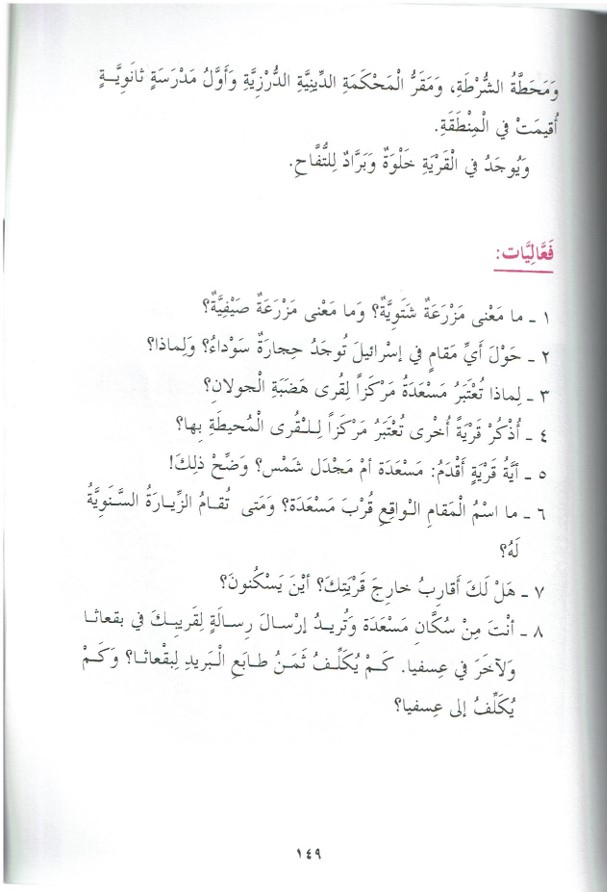 وَمَحَطَّةُ الشُّرْطَةِ، وَمَقَرُّ الْمَحْكَمَةِ الدِّينِيَّةِ الدُّرْزِيَّةِ وَأَوَّلُ مَدْرَسَةٍ ثانَوِيَّــةٍ
أُقيمَتْ في الْمِنْطَقَةِ.
وَيُوجَدُ في الْقَرْيَةِ خَلْوَةٌ وَبَرَّادٌ لِلتُّفَّاحِ.
فَعَّالِيَّات:
١ ـ ما مَعْنى مَزْرَعَةٌ شَتَوِيَّةٌ؟ وَما مَعْنى مَزْرَعَةٌ صَيْفِيَّةٌ؟
٢ ـ حَوْلَ أَيِّ مَقامٍ في إسْرائيلَ تُوجَدُ حِجارَةٌ سَوْداءُ؟ وَلِماذا؟
٣ ـ لِماذا تُعْتَبَرُ مَسْعَدَةُ مَرْكَزاً لِقُرى هَضَبَةِ الْجولانِ؟
٤ ـ أُذْكُرْ قَرْيَةً أُخْرى تُعْتَبَرُ مَرْكَزاً لِــلْـقُرى الْمُحيطَةِ بِها؟
٥ ـ أيَّةُ قَرْيَةٍ أَقْدَمُ: مَسْعَدَة أمْ مَجْدَل شَمْس؟ وَضِّحْ ذلِكَ!
٦ ـ ما اسْمُ الْمَقامِ الْـواقِعِ قُرْبَ مَسْعَدَة؟ وَمَتى تُقـامُ الزِّيـارَةُ السَّـنَوِيَّةُ
لَهُ؟
٧ ـ هَلْ لَكَ أَقارِبُ خارِجَ قَرْيَتِكَ؟ أيْنَ يَسْكُنونَ؟
٨ ـ أنْتَ مِنْ سُكَّانِ مَسْعَدَة وَتُريـدُ إرْسـالَ رِسـالَةٍ لِقَريبِـكَ في بقعاثـا
وَلآخَرَ في عِسفيا. كَـمْ يُكَلِّـفُ ثَمَـنُ طـابَعِ الْـبَريدِ لِبقْعاثـا؟ وَكَـمْ
يُكَلِّفُ إلى عِسفيا؟
١٤٩